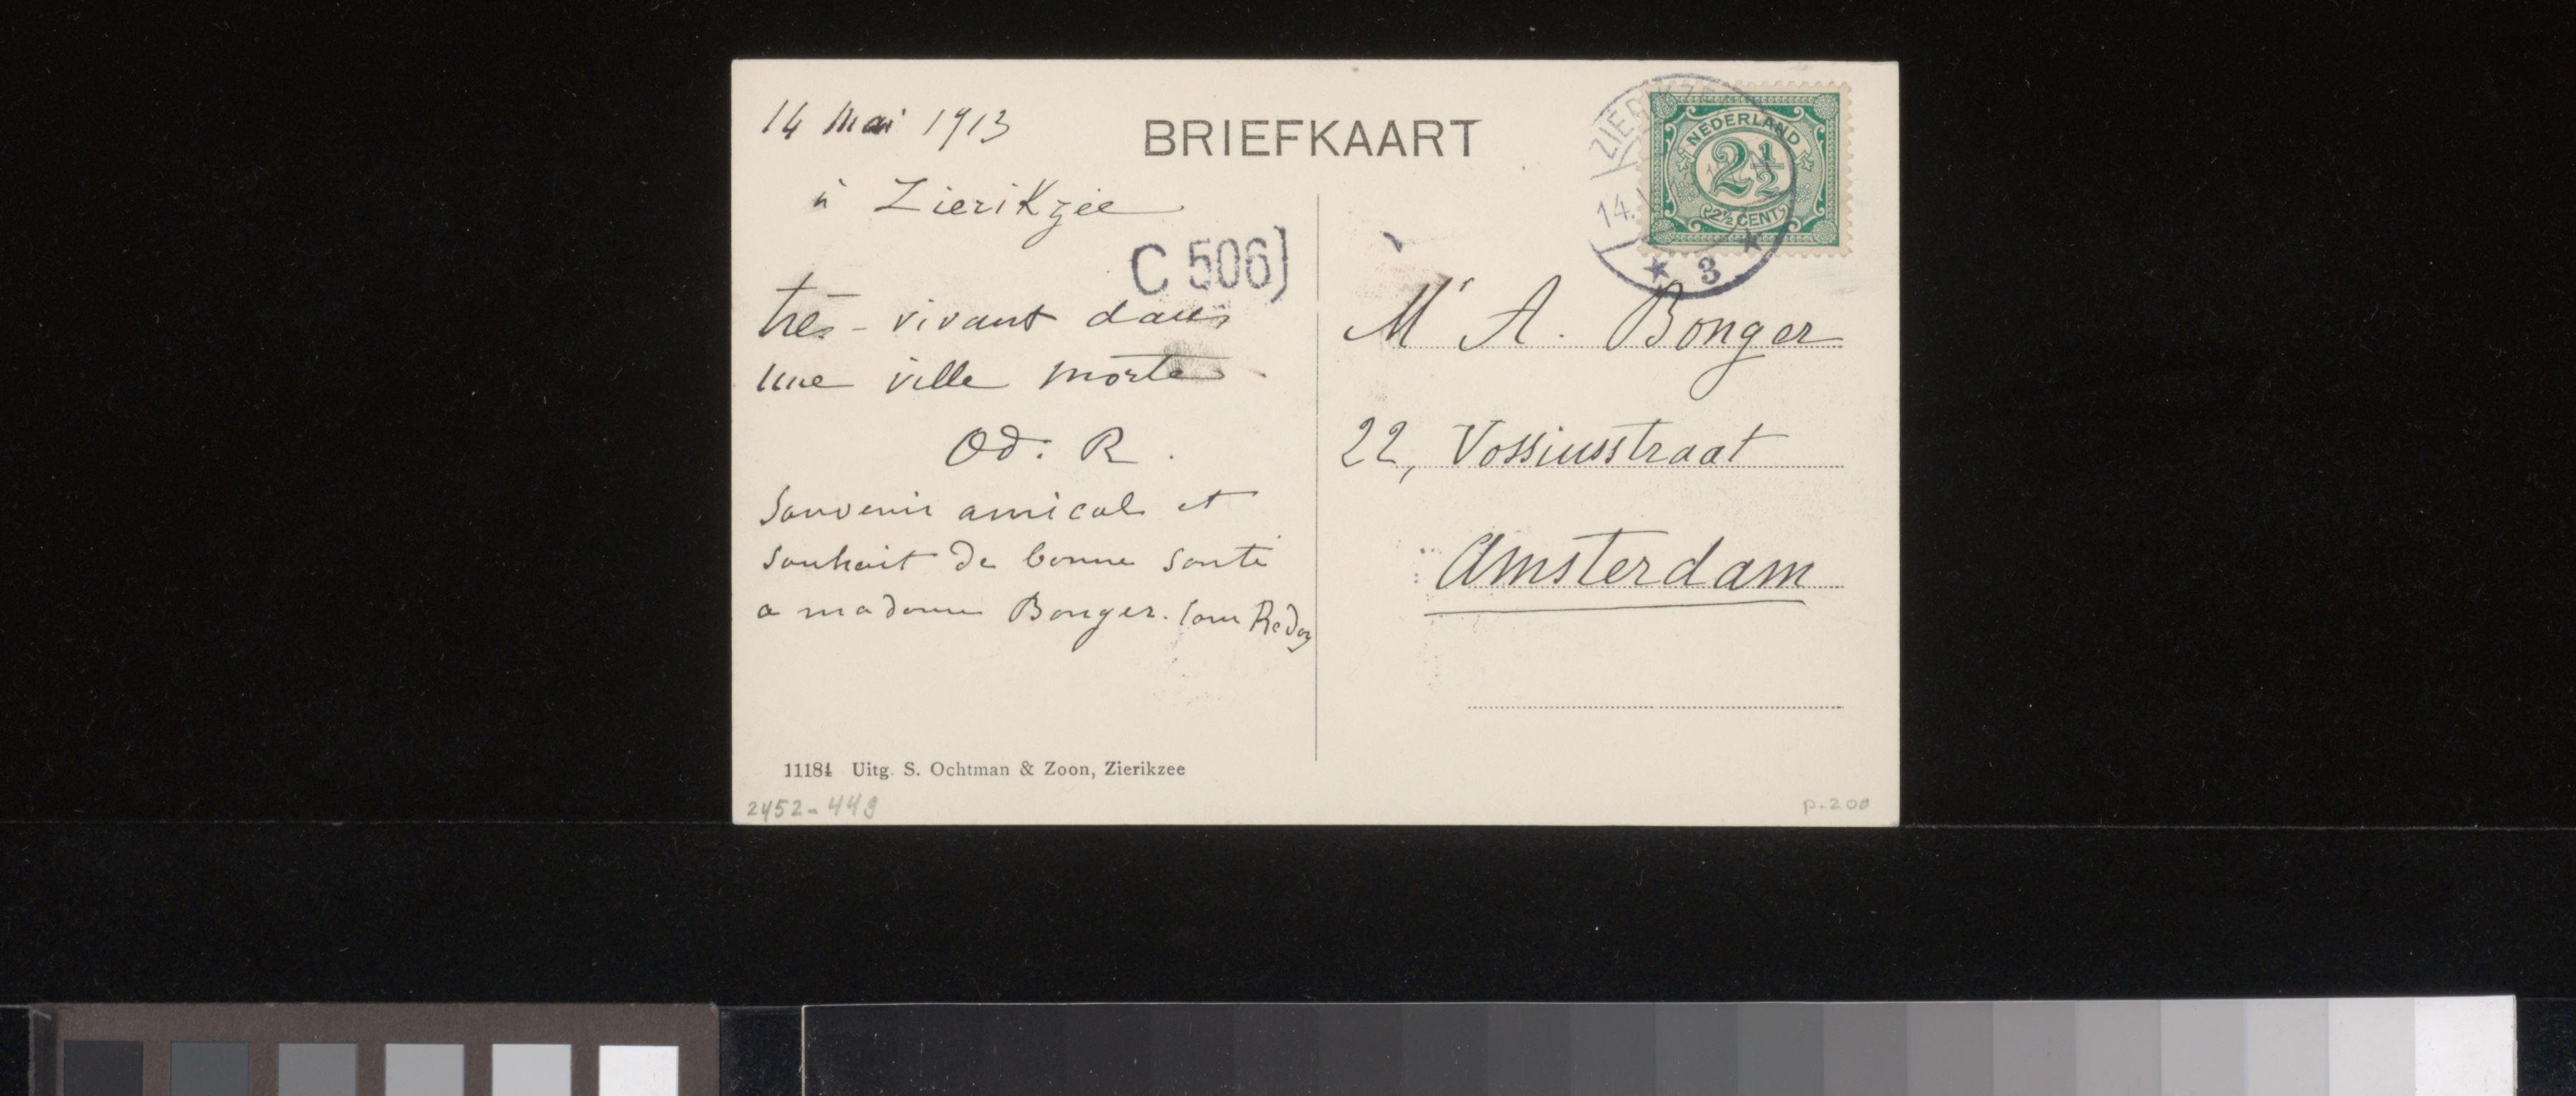 14 mai 1913
à Zierikzee
C 506]
très-vivant dans
une ville morte.
Od: R.
Souvenir amical et
souhait de bonne santé
a madame Bonger. Cam Redon
11184 Uitg. S. Ochtman & Zoon, Zierikzee
2452-449
BRIEFKAART
ZIERIKZEE
14.
3
NEDERLAND
2½
2½ CENT
Mr A. Bonger
22, Vossiusstraat
Amsterdam
p.200